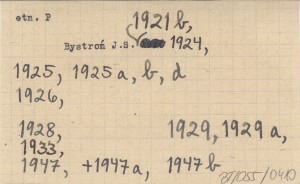 etn. P
1921 b,
Bystroń J.S. 1924,
1925, 1925 a, b, d
1926,
1928, 1929, 1929 a,
1933,
1947, +1947a, 1947 b